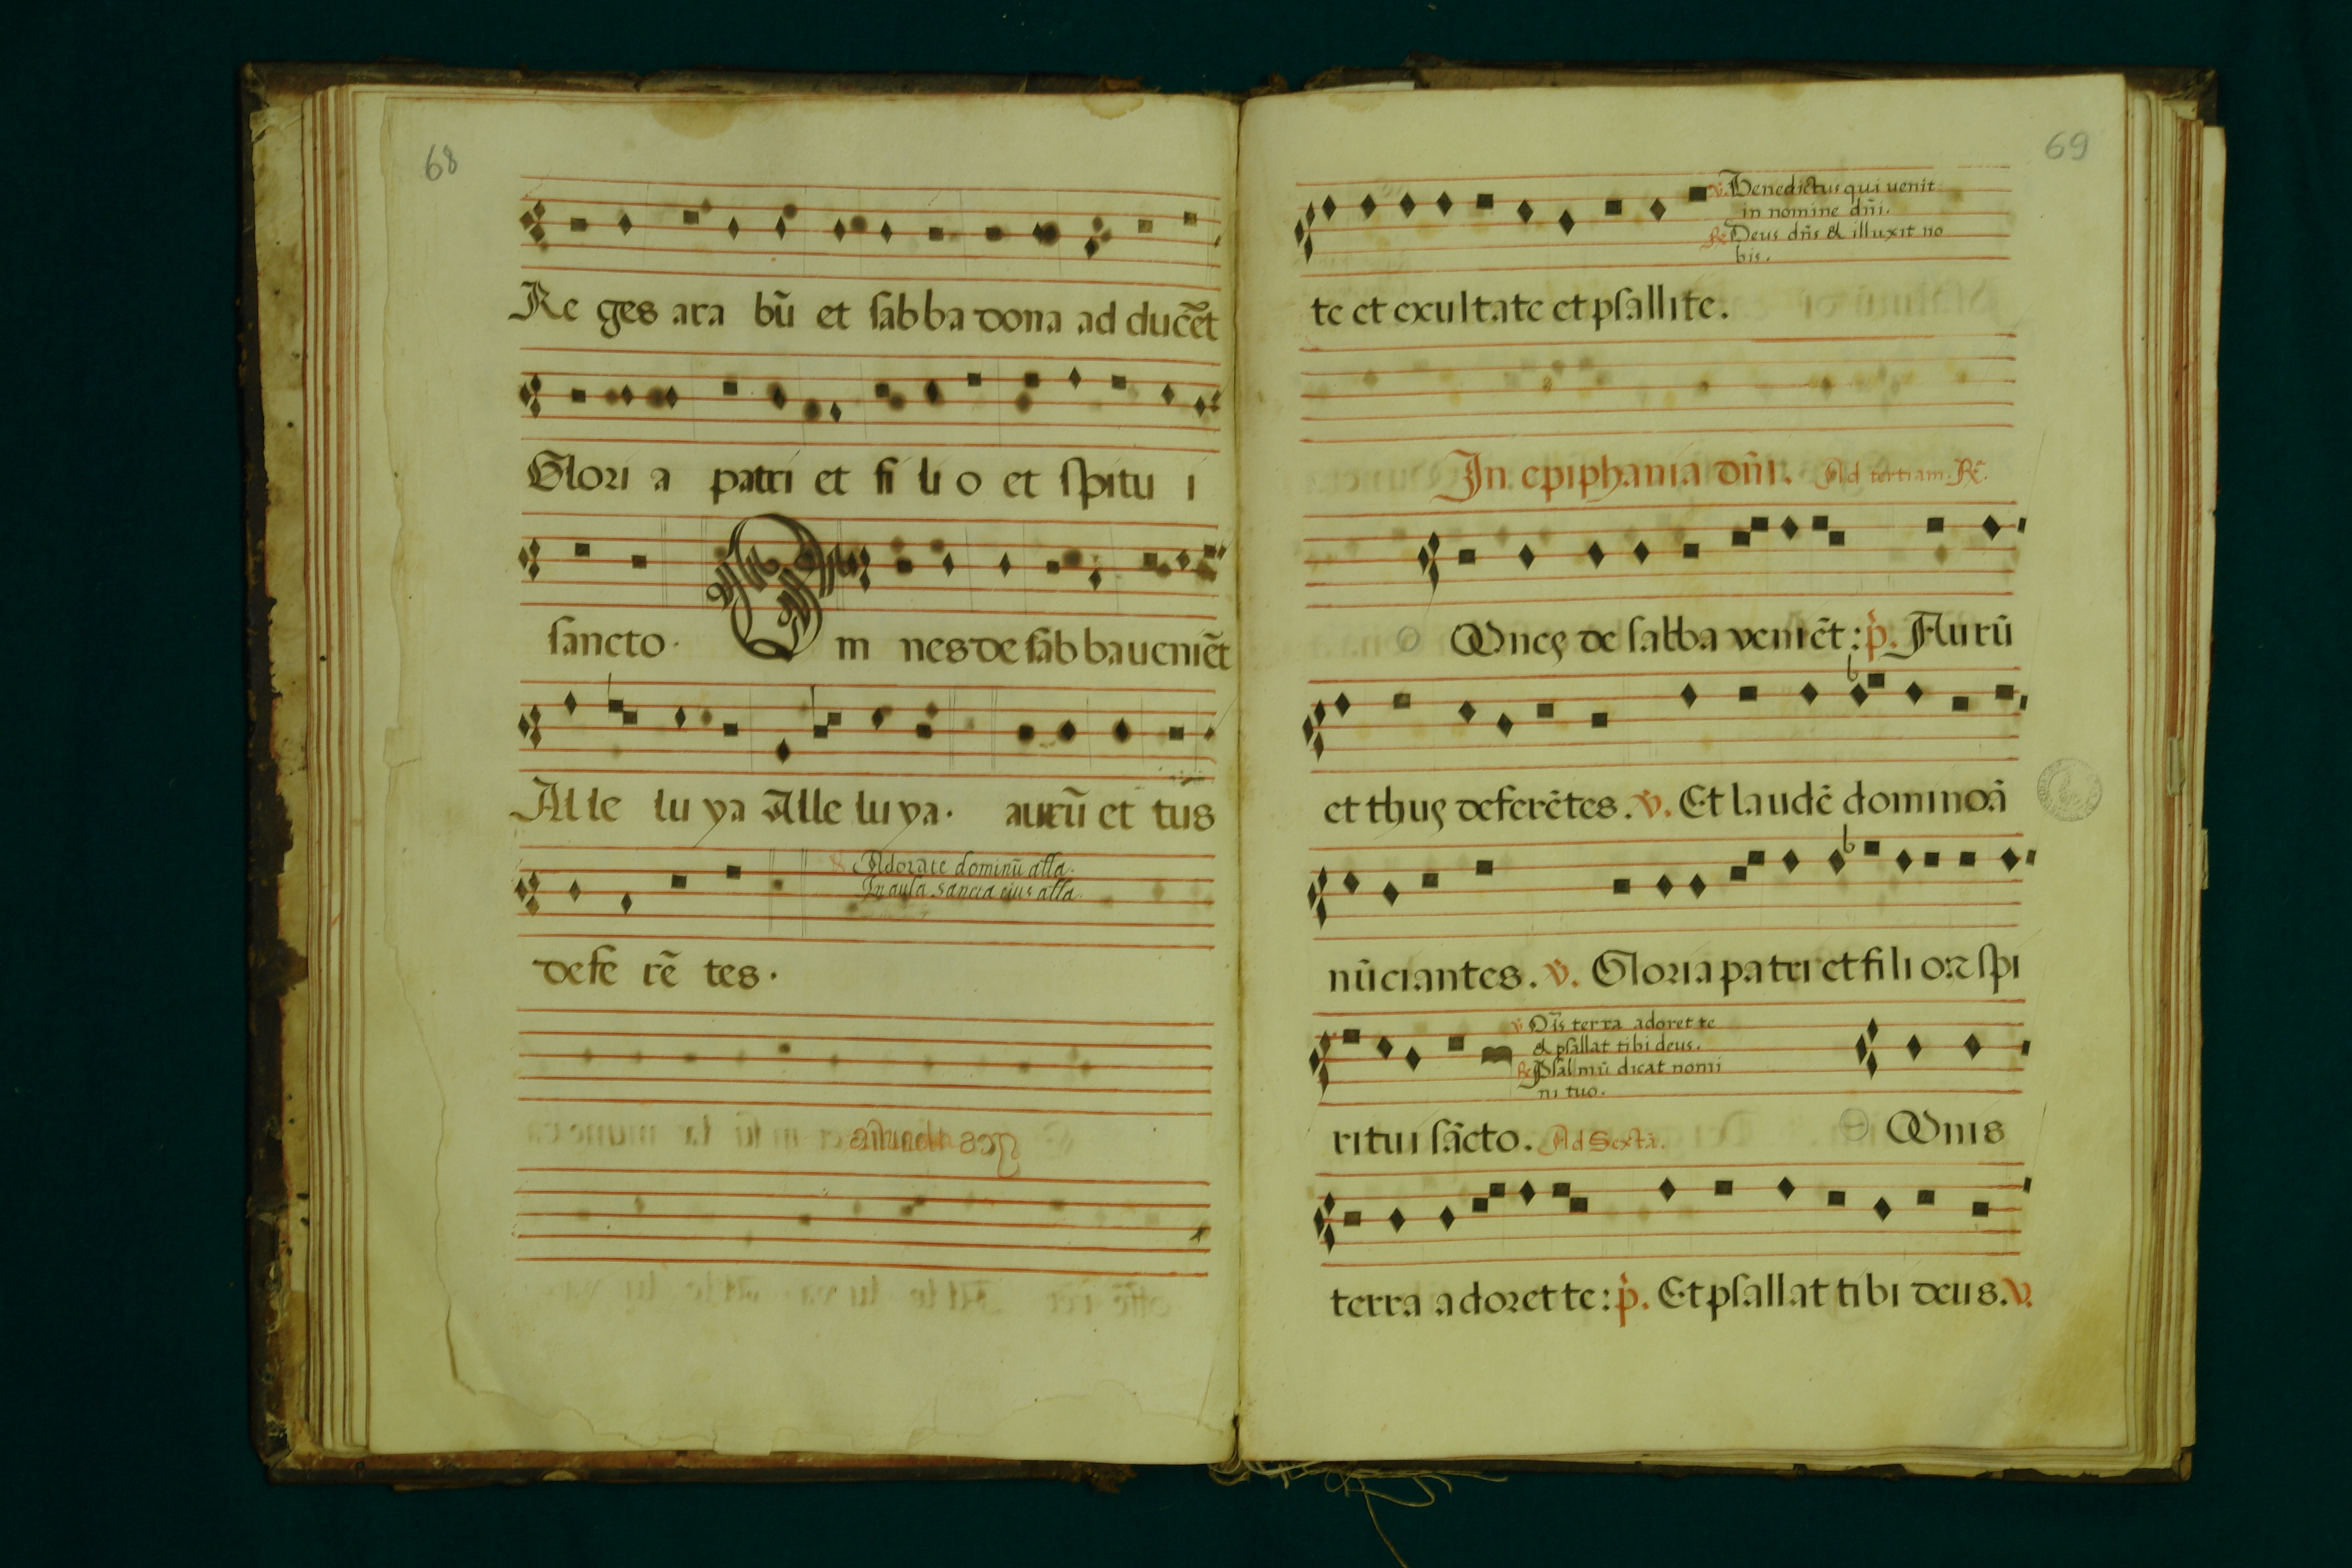 68
Re ges ara bū et ſab ba dona ad ducēt
Glori a patri et fi li o et ſpitu i
ſancto. Om nes de ſab ba ueniēt
Alle lu ya Alle lu ya. aurū et tus
℟ Adorate dominū alla.
In aula sancta eius alla.
defe rē tes.
69
℣. Benedictus qui uenit
in nomine dn̄i.
℟ Deus dn̄s & illuxit no
bis.
te et exultate et pſallite.
In epiphania dn̄i. Ad tertiam. ℟.
O Omnes de ſabba veniēt : p̄. Aurū
et thus deferētes. ℣. Et laudē domino ā
nūciantes. ℣. Gloria patri et filio ⁊ ſpi
℣ Oīs terra adoret te
& pſallat tibi deus.
℟ Pſalmū dicat nomi
ni tuo.
ritui ſācto. Ad Sextā. O Omis
terra adoret te : p̄. Et pſallat tibi deus. ℣.